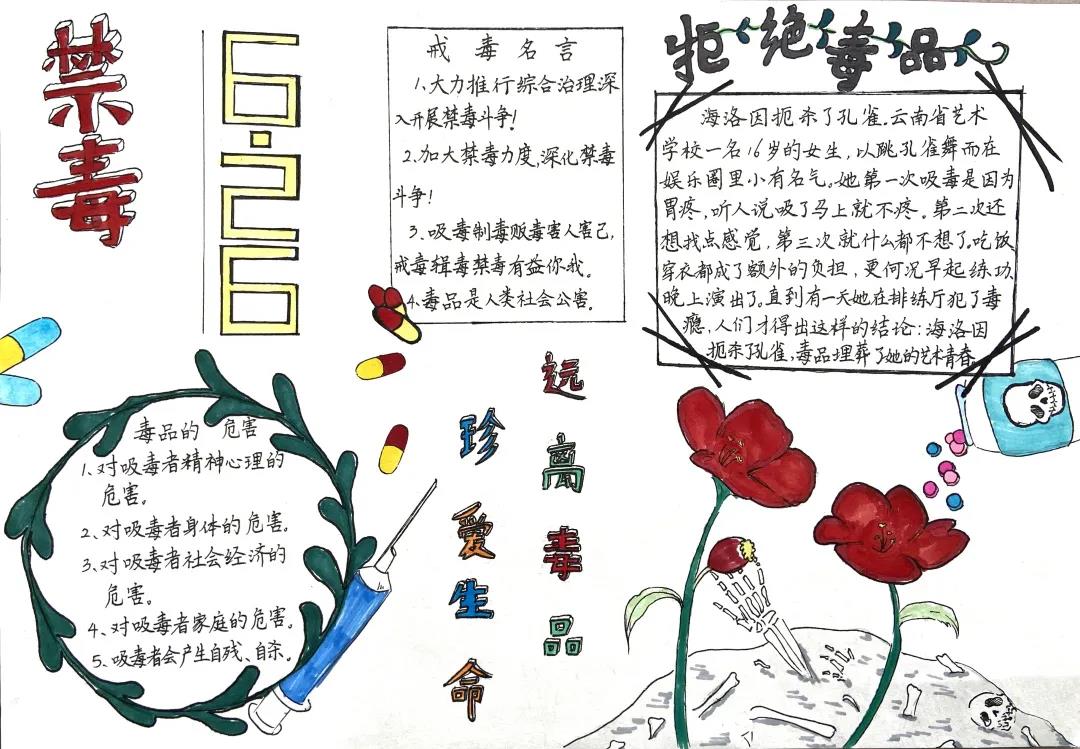 禁毒
6·26
戒毒名言
1、大力推行综合治理深
入开展禁毒斗争！
2、加大禁毒力度，深化禁毒
斗争！
3、吸毒制毒贩毒害人害己，
戒毒缉毒禁毒有益你我。
4、毒品是人类社会公害。
拒绝毒品
海洛因扼杀了孔雀。云南省艺术
学校一名16岁的女生，以跳孔雀舞而在
娱乐圈里小有名气。她第一次吸毒是因为
胃疼，听人说吸了马上就不疼。第二次还
想找点感觉，第三次就什么都不想了。吃饭、
穿衣都成了额外的负担，更何况早起练功
晚上演出了。直到有一天她在排练厅犯了毒
瘾，人们才得出这样的结论：海洛因
扼杀了孔雀，毒品埋葬了她的艺术青春
毒品的 危害
1、对吸毒者精神心理的
危害。
2、对吸毒者身体的危害。
3、对吸毒者社会经济的
危害。
4、对吸毒者家庭的危害。
5、吸毒者会产生自残、自杀。
珍爱生命
远离毒品